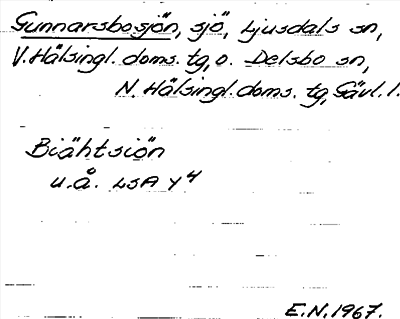 Gunnarsbosjön, sjö, Ljusdals sn,
V. Hälsingl. doms. tg, o. Delsbo sn,
N. Hälsingl. doms. tg, Gävl. l.
Biähtsiön
u. å. LSA Y4
E.N. 1967.